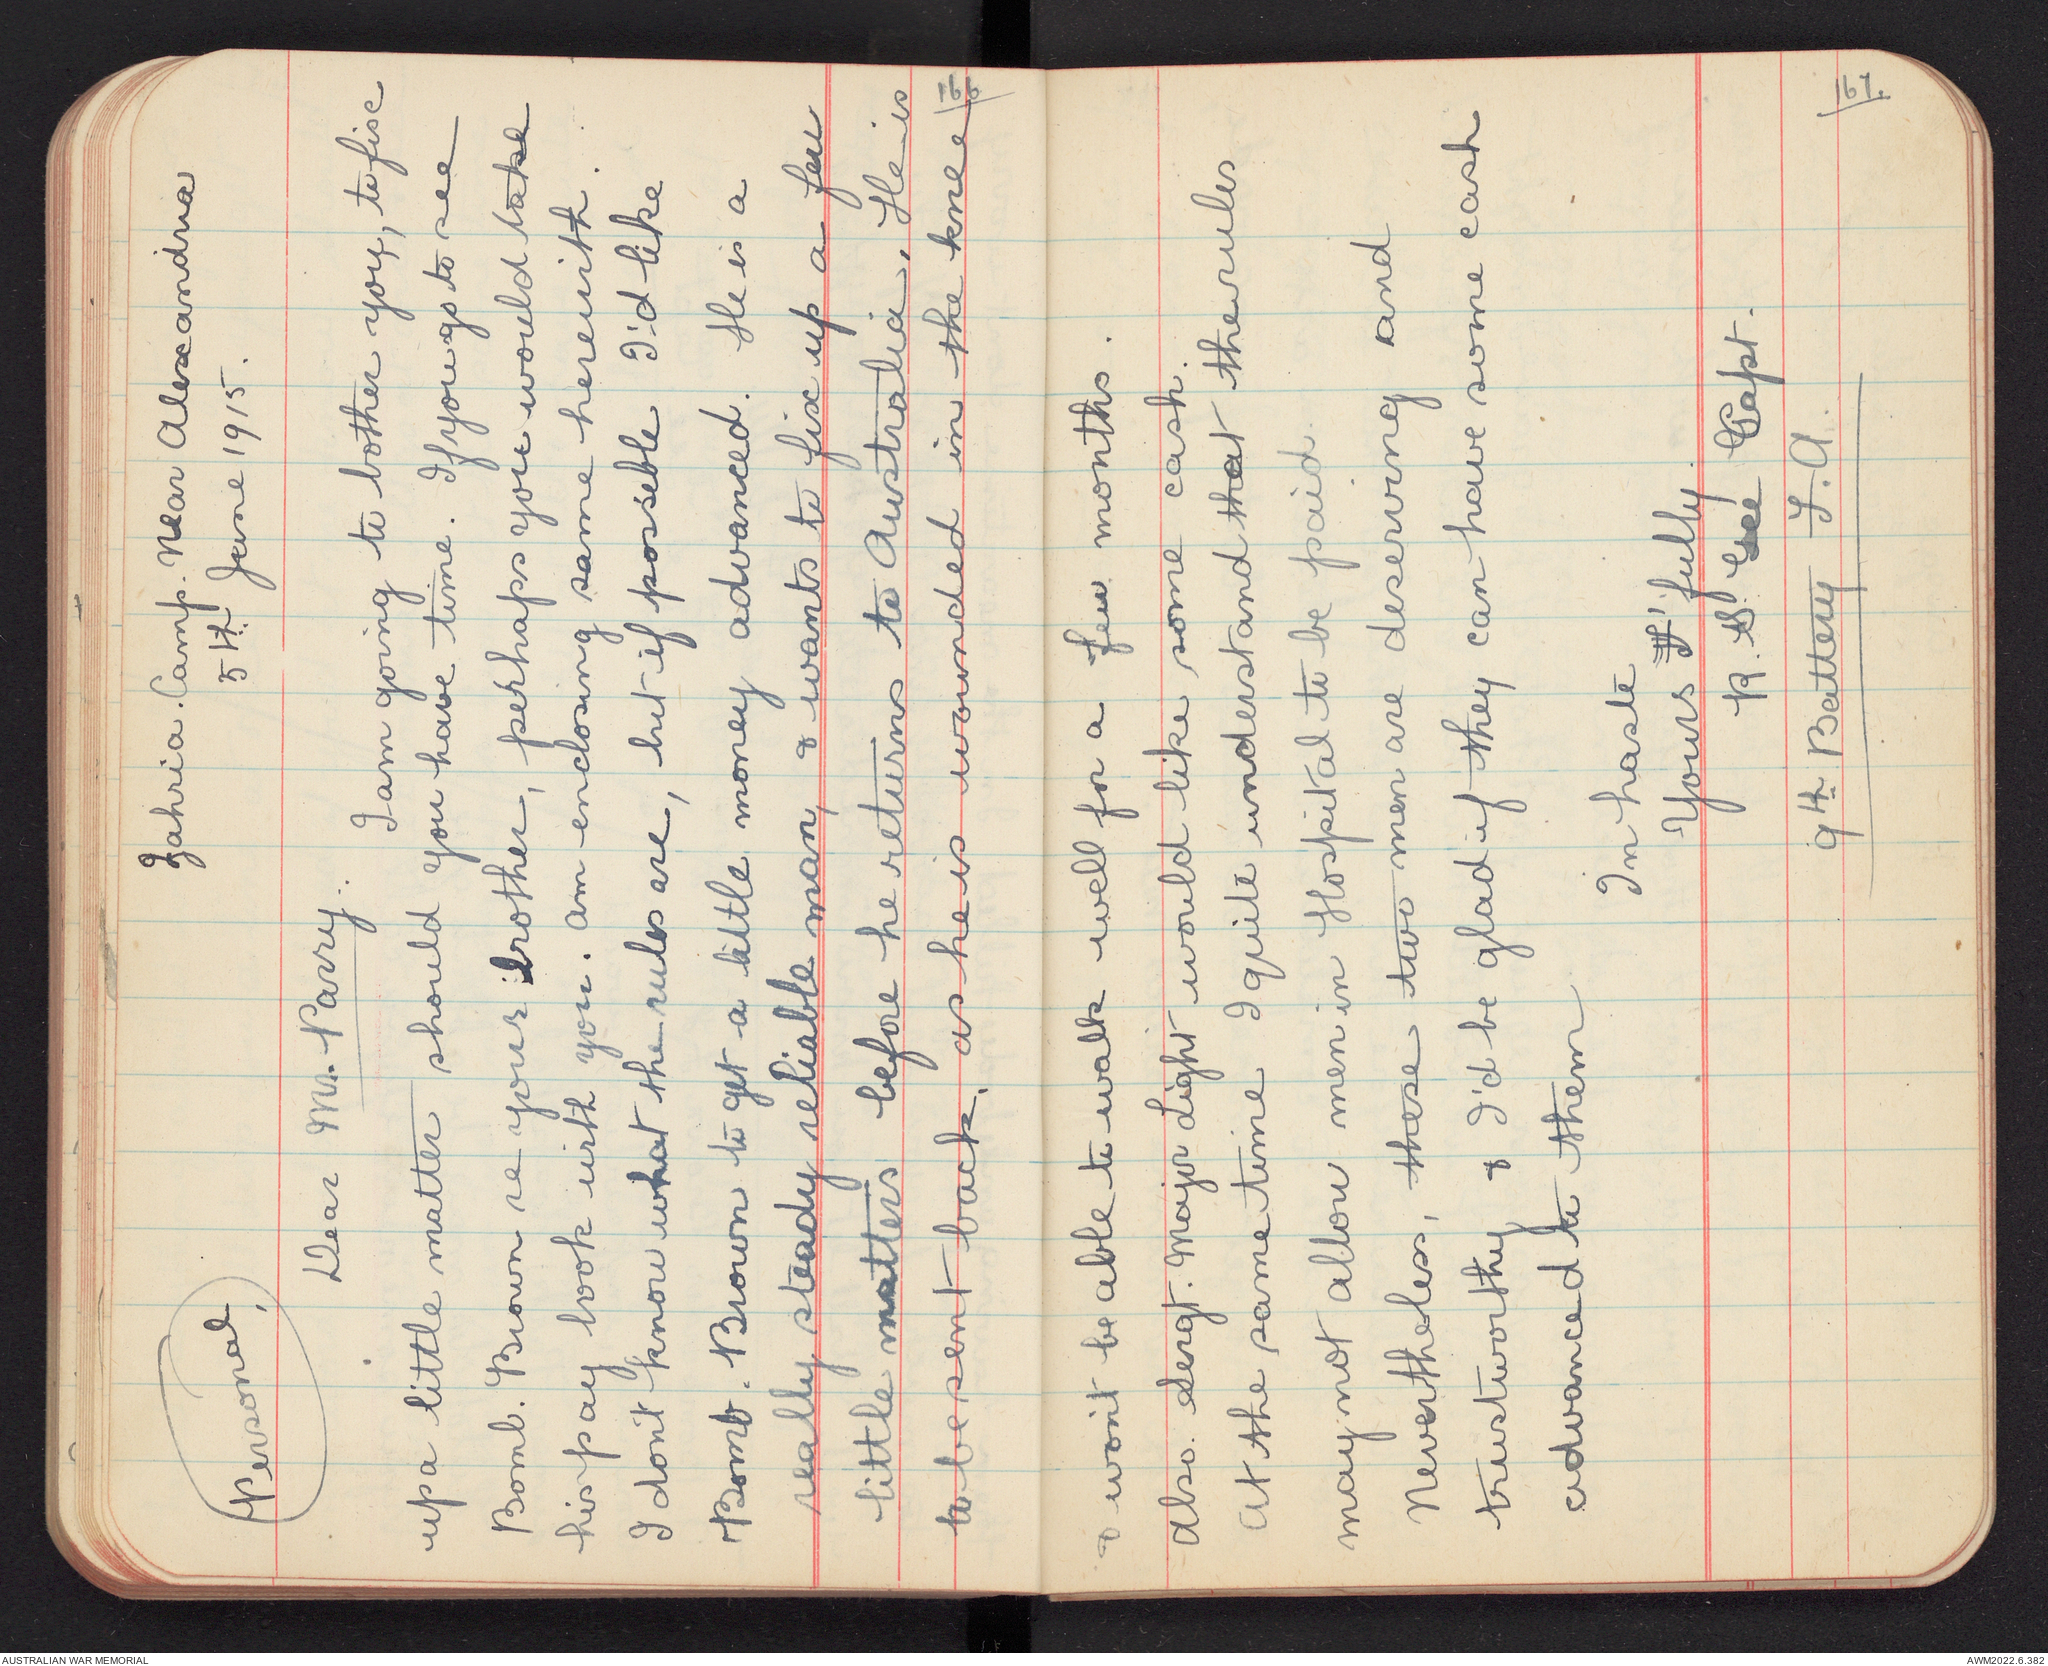 Personal,
Zahria. Camp. Near Alexandria
5th June 1915.
Dear Mr. Parry.
I am going to bother you, to fix
up a little matter should you have time. If you go to see
Bomb. Brown re your brother, perhaps you would take
his pay book with you. Am enclosing same herewith.
I don't know what the rules are, but if possible I'd like
Bomb. Brown to get a little money advanced. He is a
really steady reliable man, & wants to fix up a few
little matters before he returns to Australia, He is
to be sent back, as he is wounded in the knee
& won't be able to walk well for a few months.
Also. Sergt. Major Light would like some cash.
At the same time I quite understand that the rules
may not allow men in Hospital to be paid.
Nevertheless, these two men are deserving and
trustworthy & I'd be glad if they can have some cash
advanced to them
In haste
Yours F'fully.
R. S. Gee Capt.
9th Battery F.A.
AUSTRALIAN WAR MEMORIAL
AWM2022.6.382